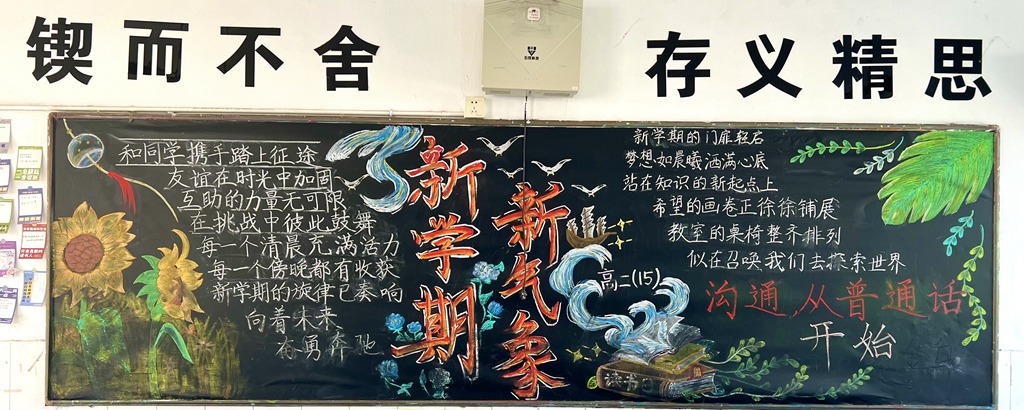 锲而不舍
存义精思
和同学携手踏上征途
友谊在时光中加固
互助的力量无可限
在挑战中彼此鼓舞
每一个清晨充满活力
每一个傍晚都有收获
新学期的旋律已奏响
向着未来
奋勇奔驰
新学期
新气象
高二(15)
读书
新学期的门扉轻启
梦想如晨曦洒满心底
站在知识的新起点上
希望的画卷正徐徐铺展
教室的桌椅整齐排列
似在召唤我们去探索世界
沟通,从普通话
开始